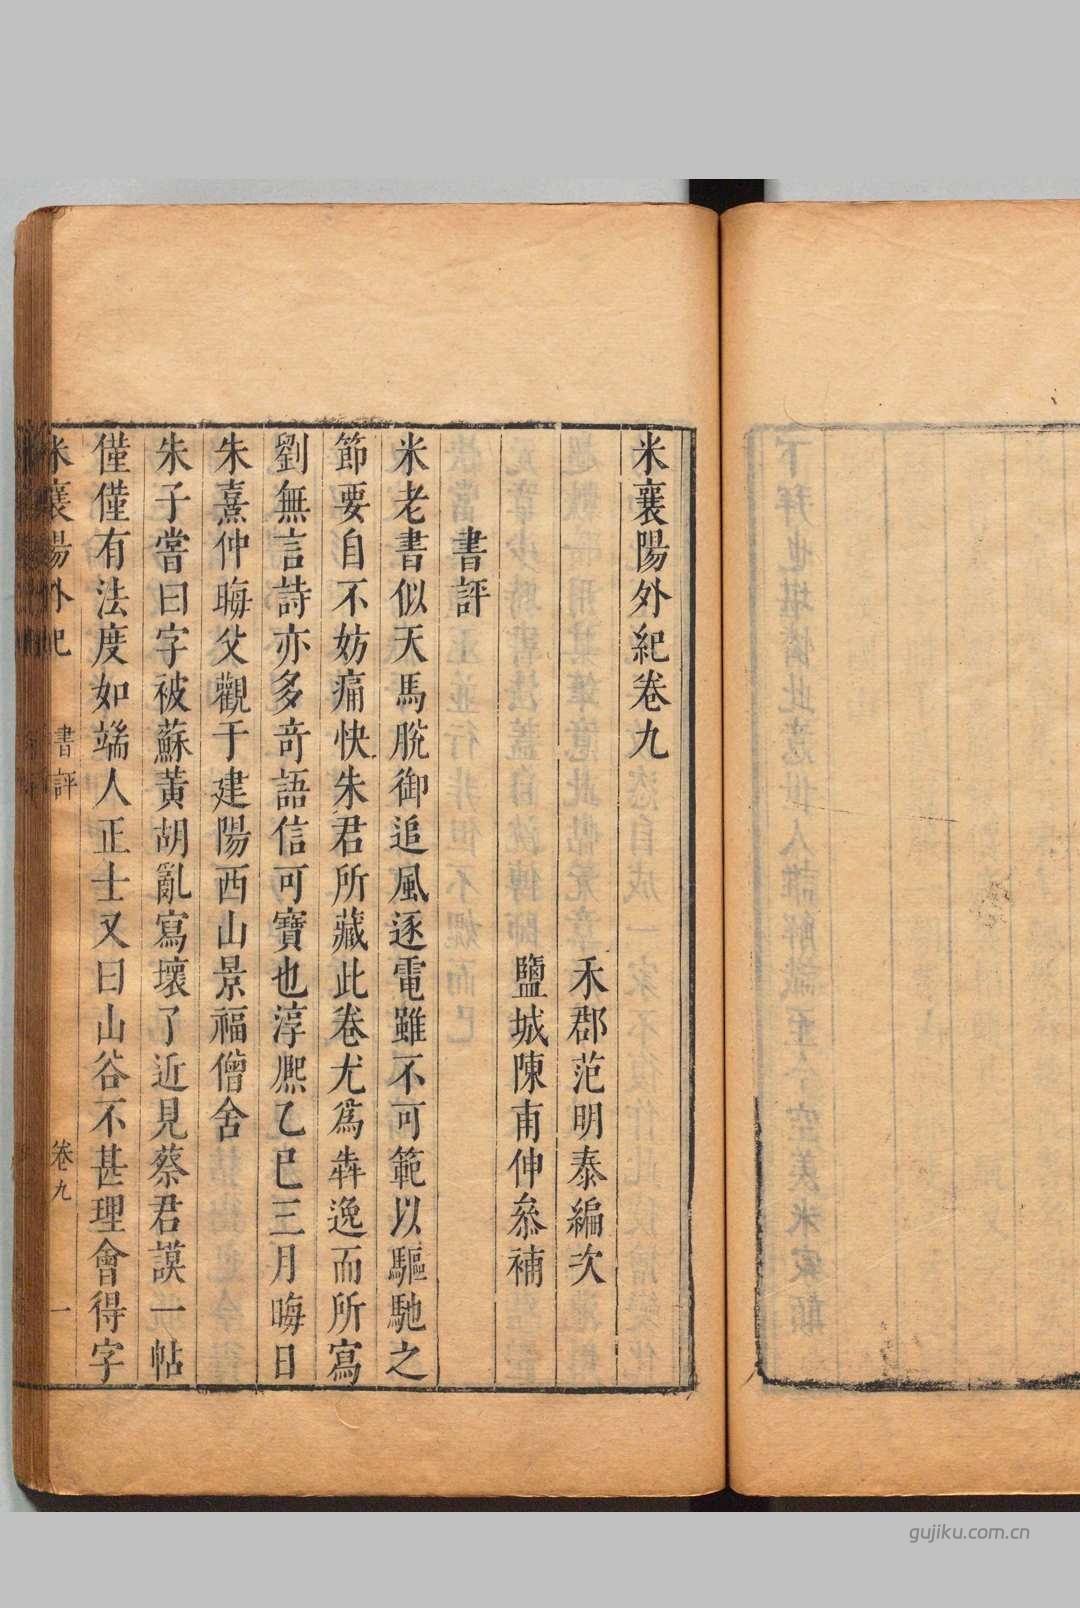 米襄陽外紀卷九
禾郡范明泰編次
鹽城陳甫伸叅補
書評
米老書似天馬脫御追風逐電雖不可範以驅馳之
節要自不妨痛快朱君所藏此卷尤為犇逸而所寫
劉無言詩亦多奇語信可寶也淳熈乙巳三月晦日
朱熹仲晦父觀于建陽西山景福僧舍
朱子嘗曰字被蘇黃胡亂寫壞了近見蔡君謨一帖
僅僅有法度如端人正士又曰山谷不甚理會得字
米襄陽外紀 書評 卷九 一
gujiku.com.cn